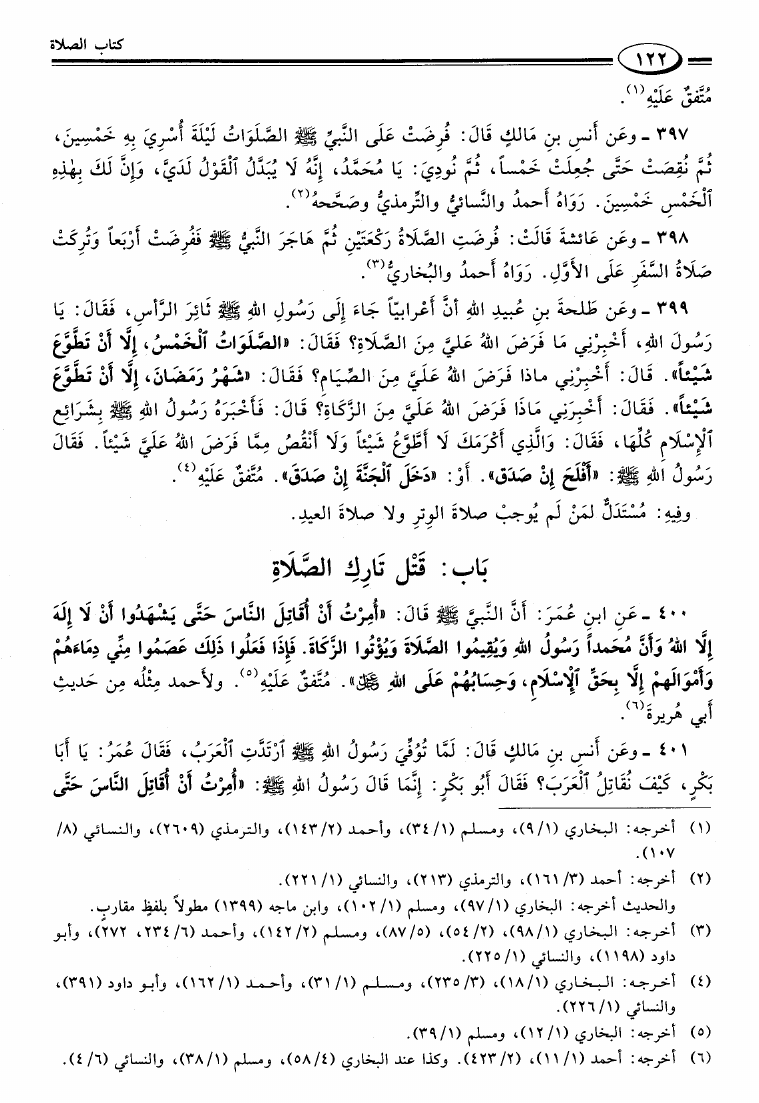 كتاب الصلاة
١٢٢
مُتَّفقٌ عَلَيْهِ(١).
٣٩٧ ـ وعَن أنَسِ بنِ مَالكٍ قَالَ: فُرِضَتْ عَلَى النَّبيِّ ﷺ الصَّلَوَاتُ لَيْلَةَ أُسْرِيَ بِهِ خَمْسِينَ،
ثُمَّ نُقِصَتْ حَتَّى جُعِلَتْ خَمْساً، ثُمَّ نُودِيَ: يا مُحَمَّدُ، إِنَّهُ لَا يُبَدَّلُ ٱلْقَوْلُ لَدَيَّ، وَإِنَّ لَكَ بِهٰذِهِ
ٱلْخَمْسِ خَمْسِينَ. رَوَاهُ أَحمدُ والنَّسائيُّ والتِّرمذيُّ وصَحَّحهُ(٢).
٣٩٨ ـ وعَن عَائشةَ قَالَتْ: فُرِضَتِ الصَّلاةُ رَكْعَتَيْنِ ثُمَّ هَاجَرَ النَّبيُّ ﷺ فَفُرِضَتْ أَرْبَعاً وَتُرِكَتْ
صَلاةُ السَّفَرِ عَلى الأوَّلِ. رَوَاهُ أحمدُ والبُخاريُّ(٣).
٣٩٩ ـ وعَن طَلحةَ بنِ عُبيدِ اللهِ أنَّ أعْرابيّاً جَاءَ إِلَى رَسُولِ اللهِ ﷺ ثَائِرَ الرَّأسِ، فَقَالَ: يَا
رَسُولَ اللهِ، أَخْبِرْنِي مَا فَرَضَ اللهُ عَليَّ مِنَ الصَّلاةِ؟ فَقَالَ: «الصَّلَوَاتُ ٱلْخَمْسُ، إِلَّا أَنْ تَطَّوَّعَ
شَيْئاً». قَالَ: أَخْبِرْنِي ماذا فَرَضَ اللهُ عَلَيَّ مِنَ الصِّيَامِ؟ فَقَالَ: «شَهْرُ رَمَضَانَ، إِلَّا أَنْ تَطَّوَّعَ
شَيْئاً». فَقَالَ: أَخْبِرَنِي مَاذَا فَرَضَ اللهُ عَلَيَّ مِنَ الزَّكَاةِ؟ قَالَ: فَأَخْبَرَهُ رَسُولُ اللهِ ﷺ بِشَرَائِعِ
ٱلْإِسْلَامِ كُلِّهَا، فَقَالَ: وَالَّذِي أَكْرَمَكَ لَا أَطَّوَّعُ شَيْئاً وَلَا أَنْقُصُ مِمَّا فَرَضَ اللهُ عَلَيَّ شَيْئاً. فَقَالَ
رَسُولُ اللهِ ﷺ: «أَفْلَحَ إِنْ صَدَقَ». أَوْ: «دَخَلَ ٱلْجَنَّةَ إِنْ صَدَقَ». مُتَّفقٌ عَلَيْهِ(٤).
وفِيهِ: مُسْتَدَلٌّ لمَنْ لَم يُوجبْ صلاةَ الوِترِ ولا صلاةَ العيدِ.
بَاب: قَتْل تَارِكِ الصَّلَاةِ
٤٠٠ ـ عَنِ ابنِ عُمَرَ: أَنَّ النَّبِيَّ ﷺ قَالَ: «أُمِرْتُ أَنْ أُقَاتِلَ النَّاسَ حَتَّى يَشْهَدُوا أَنْ لَا إِلَهَ
إِلَّا اللهُ وَأَنَّ مُحَمداً رَسُولُ اللهِ وَيُقِيمُوا الصَّلَاةَ وَيُؤْتُوا الزَّكَاةَ. فَإِذَا فَعَلُوا ذَلِكَ عَصَمُوا مِنِّي دِمَاءَهُمْ
وَأَمْوَالَهمْ إِلَّا بِحَقِّ ٱلْإِسْلَامِ، وَحِسَابُهُمْ عَلَى اللهِ ﷻ». مُتَّفقٌ عَلَيْهِ(٥). ولأحمد مِثْلُه مِن حَديثِ
أبي هُريرةَ(٦).
٤٠١ ـ وعَن أنَسِ بنِ مَالكٍ قَالَ: لَمَّا تُوُفِّيَ رَسُولُ اللهِ ﷺ ٱرْتَدَّتِ ٱلْعَرَبُ، فَقَالَ عُمَرُ: يَا أَبَا
بَكْرٍ، كَيْفَ نُقَاتِلُ ٱلْعَرَبَ؟ فَقَالَ أَبُو بَكْرٍ: إِنَّمَا قَالَ رَسُولُ اللهِ ﷺ: «أُمِرْتُ أَنْ أُقَاتِلَ النَّاسَ حَتَّى
(١) أخرجه: البخاري (٩/١)، ومسلم (٣٤/١)، وأحمد (١٤٣/٢)، والترمذي (٢٦٠٩)، والنسائي (٨/
١٠٧).
(٢) أخرجه: أحمد (١٦١/٣)، والترمذي (٢١٣)، والنسائي (٢٢١/١).
والحديث أخرجه: البخاري (٩٧/١)، ومسلم (١٠٢/١)، وابن ماجه (١٣٩٩) مطولاً بلفظٍ مقاربٍ.
(٣) أخرجه: البخاري (٩٨/١)، (٥٤/٢)، (٨٧/٥)، ومسلم (١٤٢/٢)، وأحمد (٢٣٤/٦، ٢٧٢)، وأبو
داود (١١٩٨)، والنسائي (٢٢٥/١).
(٤) أخرجه: البخاري (١٨/١)، (٢٣٥/٣)، ومسلم (٣١/١)، وأحمد (١٦٢/١)، وأبو داود (٣٩١)،
والنسائي (٢٢٦/١).
(٥) أخرجه: البخاري (١٢/١)، ومسلم (٣٩/١).
(٦) أخرجه: أحمد (١١/١)، (٤٢٣/٢). وكذا عند البخاري (٥٨/٤)، ومسلم (٣٨/١)، والنسائي (٤/٦).